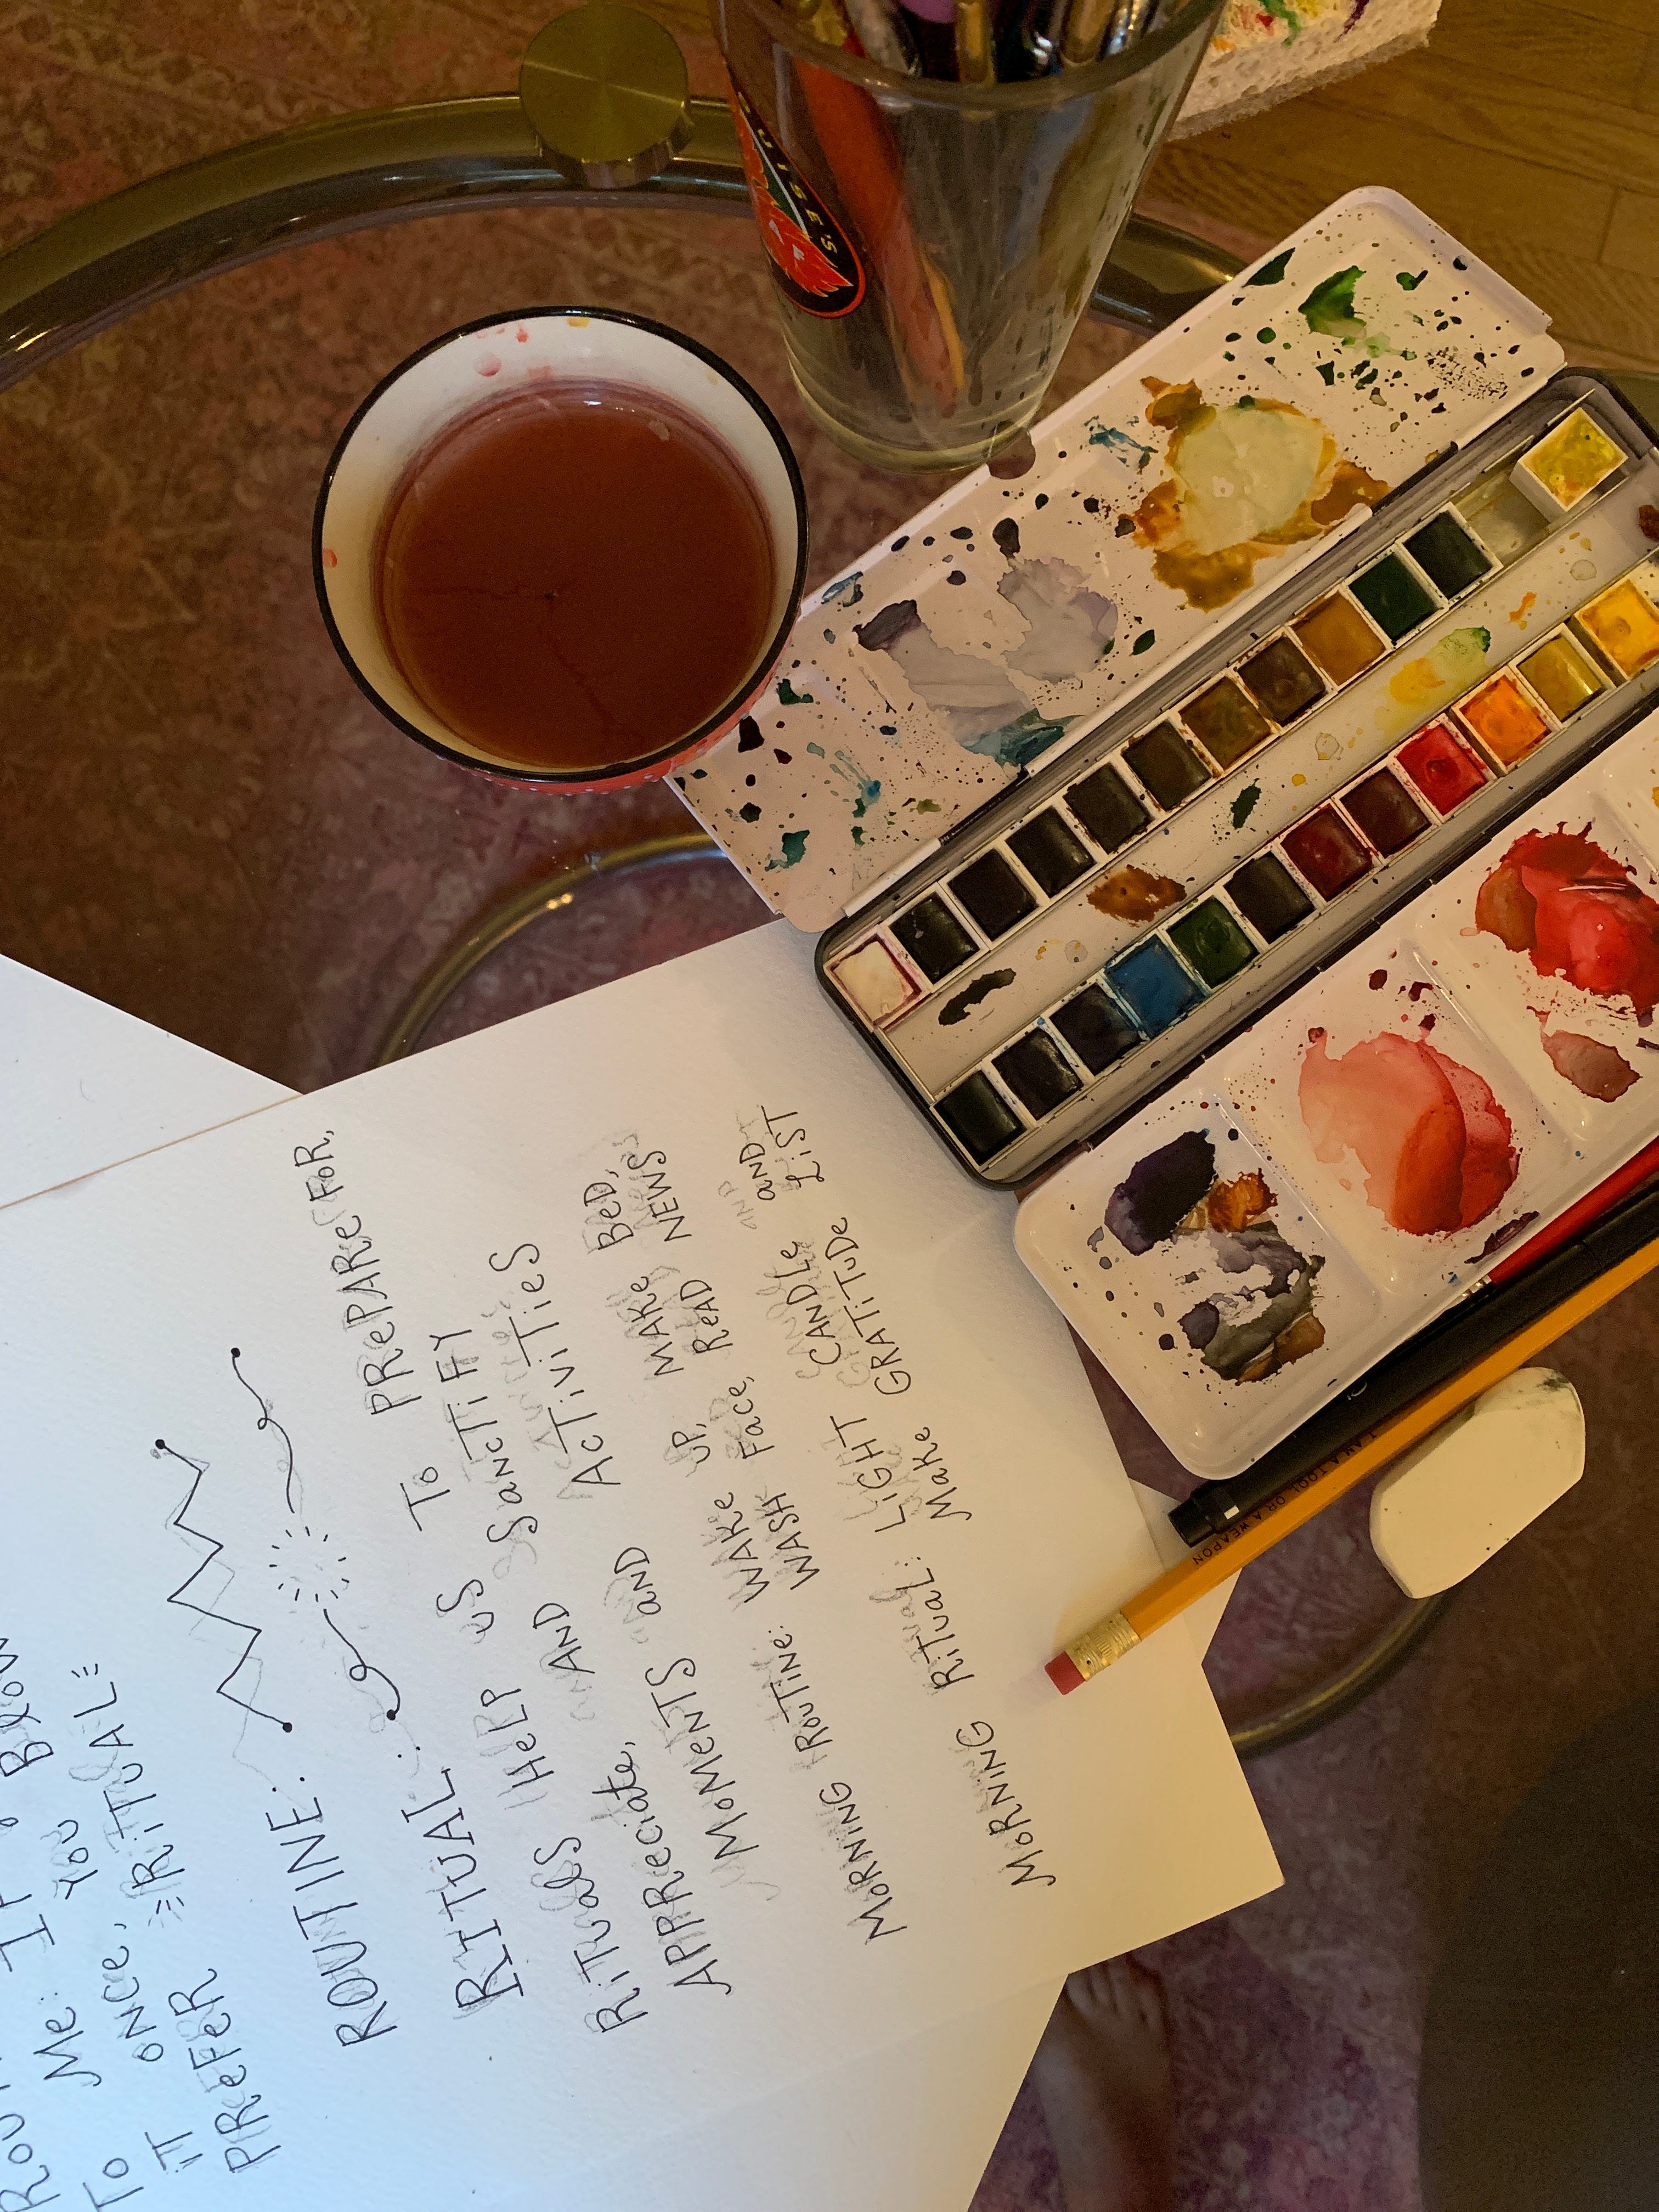 Me: IF
To once, You
"IT "RiTUAL"
PReFeR
ROUTINE:
RITUAL:
RiTuals HeLP us To PRePARe FoR,
APPReciate, AND SancTiFY
MoMeNTS and AcTiviTieS
MoRNiNG RouTiNe: WAKe UP, MAKe BeD,
WASH Face, ReAD NEWS
MoRNiNG RiTual: LiGHT CANDLe and
Make GRATiTuDe LiST
I AM A TOOL OR A WEAPON